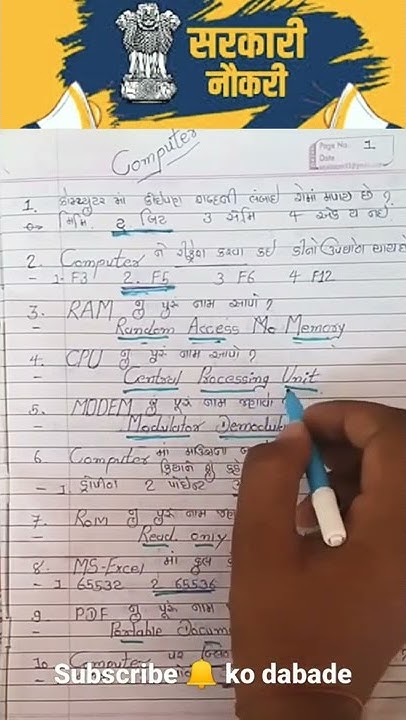 सरकारी
नौकरी
Computer
Page No. 1
Date
1. કોમ્પ્યુટર માં કોઈપણ શબ્દની લંબાઈ શેમાં મપાય છે ?
મિમિ 2 બિટ 3 સેમિ 4 એક ય નઈ
2. Computer ને રીફ્રેશ કરવા કઈ કીનો ઉપયોગ થાય છે
- 1- F3 2. F5 3 F6 4 F12
3. RAM નું પુરૂ નામ આપો ?
- Random Access Me Memory
4. CPU નું પુરૂ નામ આપો ?
- Central Processing Unit
5. MODEM નું પૂરૂ નામ જણાવો
- Modulator Demodul
6 Computer માં માઉસના
ક્રિયાને શું
- 1. ડ્રોપીંગ 2 પોઈન્ટ 3
7. ROM નું પુરૂ નામ
- Read only
8. MS-Excel માં કુલ
- 1 65532 2 65536
9. PDF નું પૂરૂ નામ
- Portable Docum
10 Computer પર
Subscribe 🔔 ko dabade